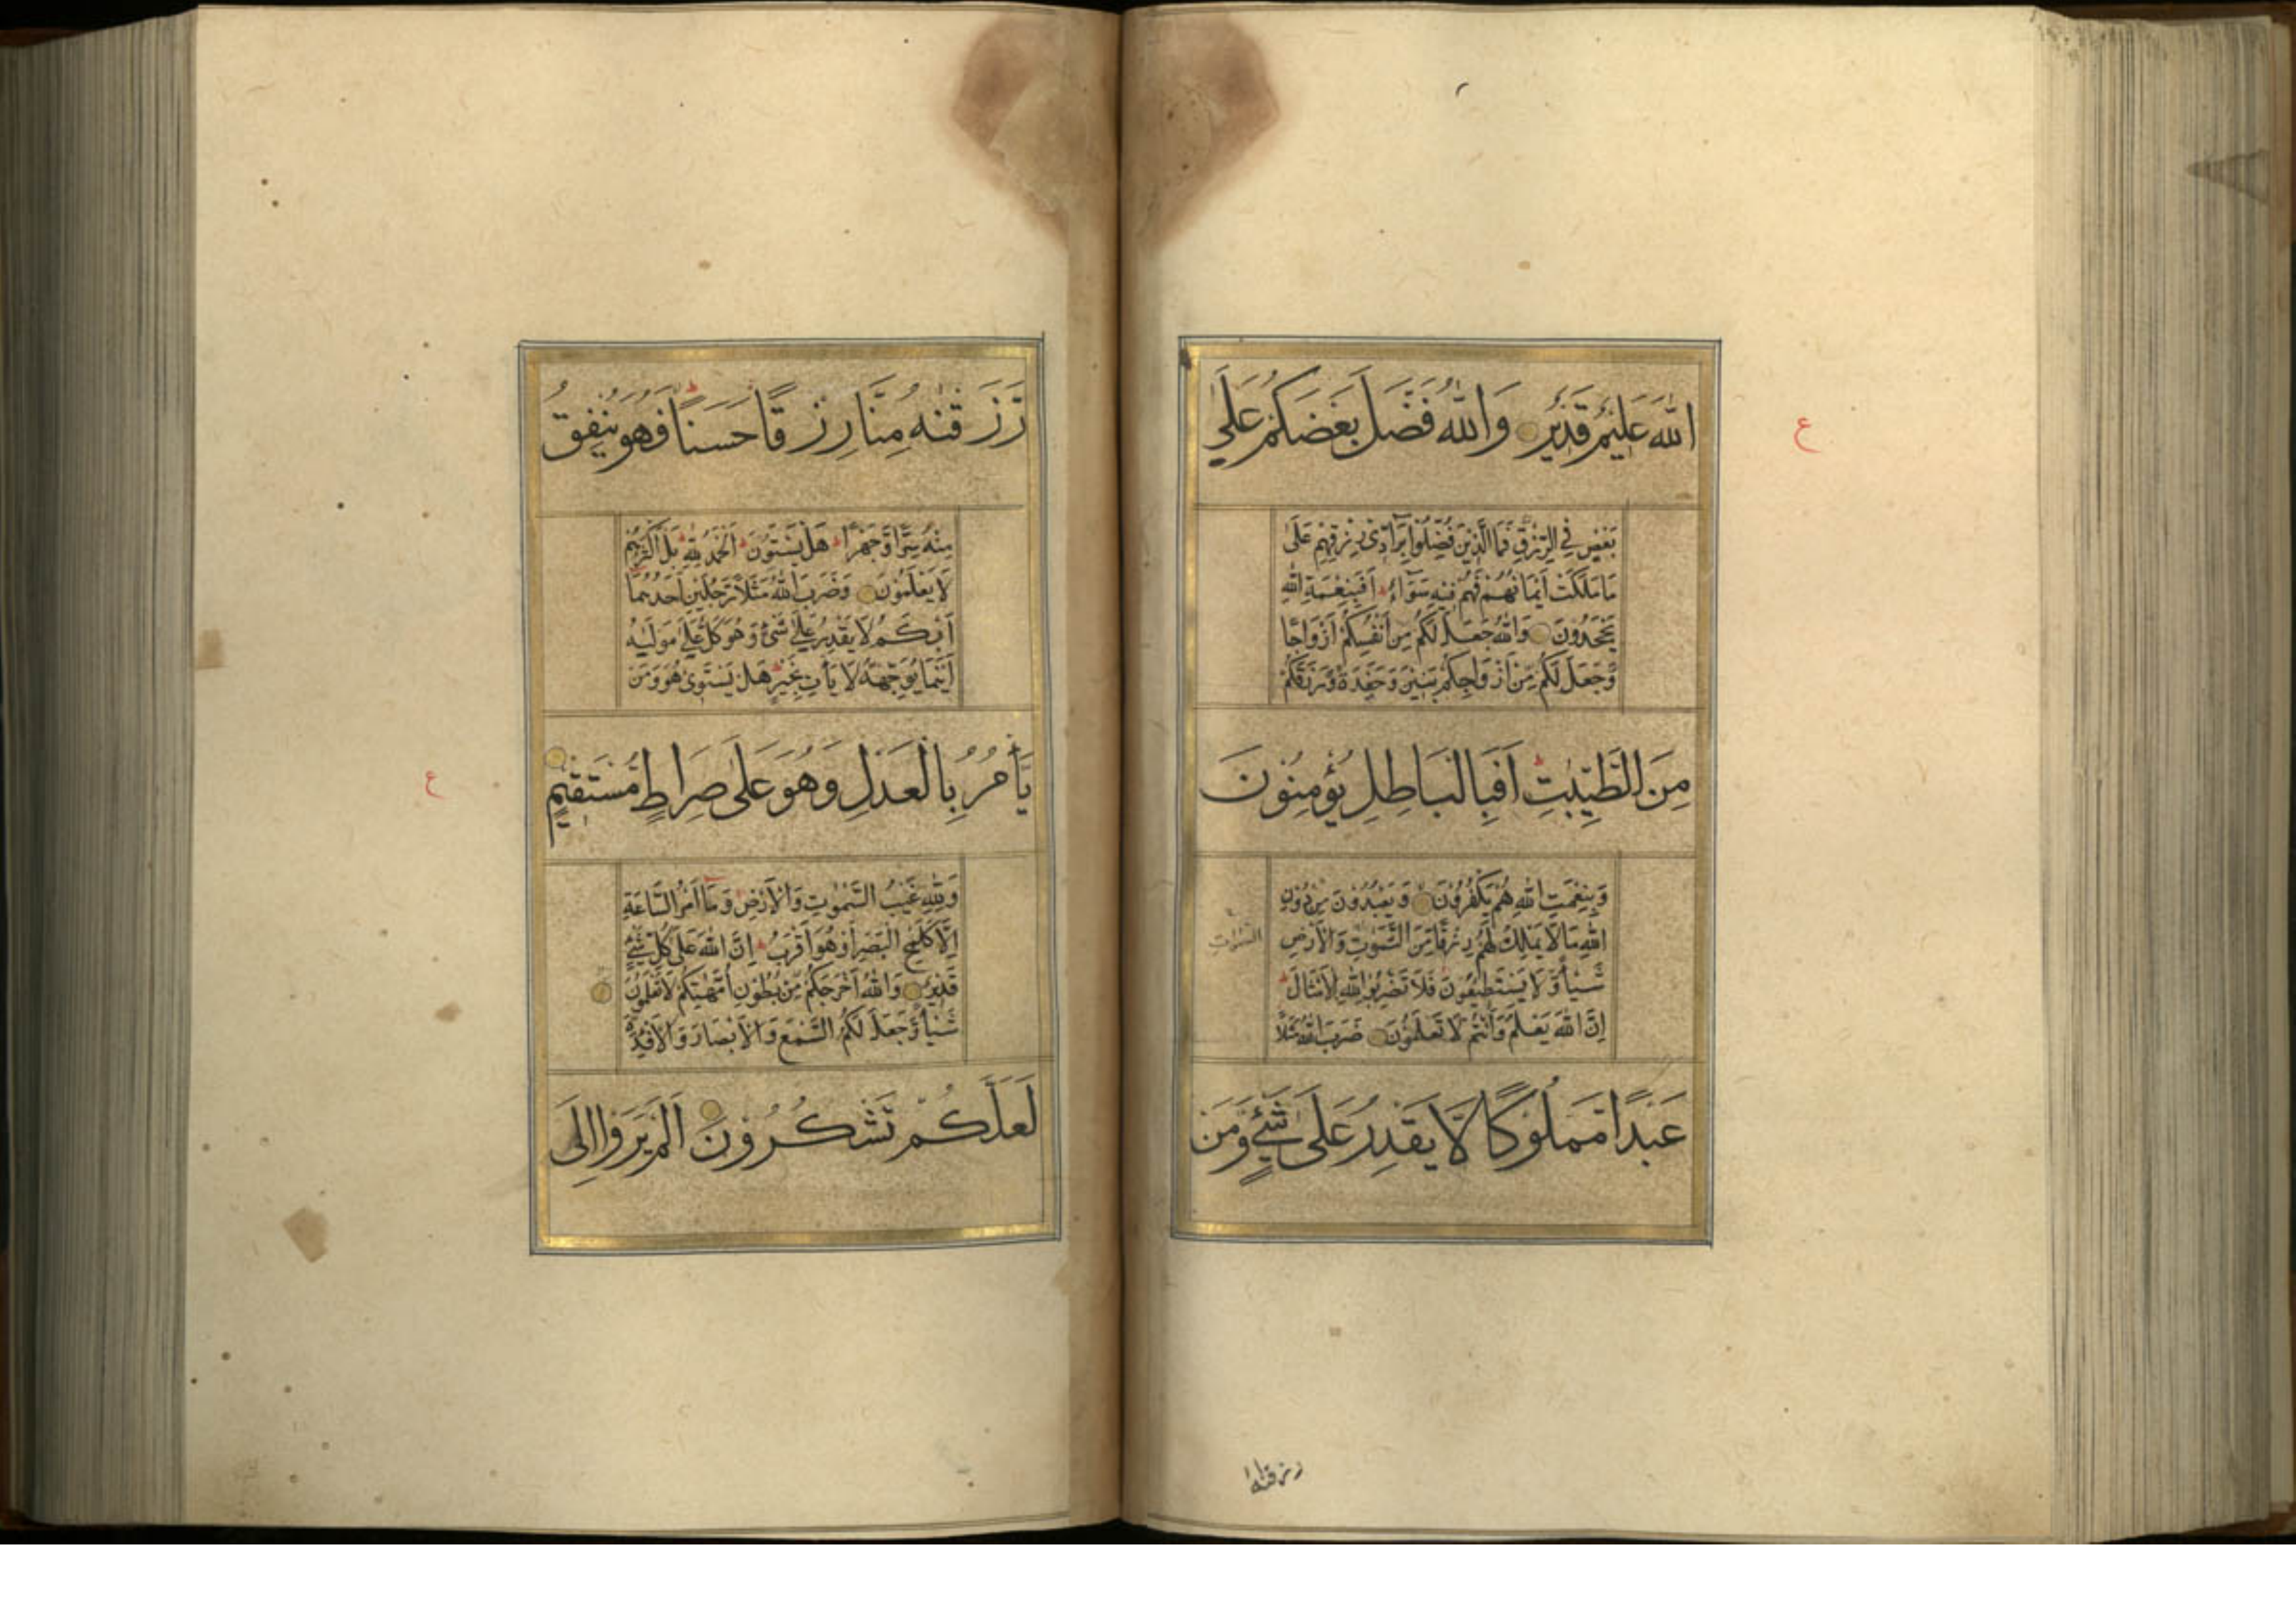 ع
اللّٰهَ عَلِيْمٌ قَدِيْرٌ وَاللّٰهُ فَضَّلَ بَعْضَكُمْ عَلٰى
بَعْضٍ فِي الرِّزْقِ فَمَا الَّذِيْنَ فُضِّلُوْا بِرَآدِّىْ رِزْقِهِمْ عَلٰى
مَا مَلَكَتْ اَيْمَانُهُمْ فَهُمْ فِيْهِ سَوَآءٌ اَفَبِنِعْمَةِ اللّٰهِ
يَجْحَدُوْنَ وَاللّٰهُ جَعَلَ لَكُمْ مِنْ اَنْفُسِكُمْ اَزْوَاجًا
وَّجَعَلَ لَكُمْ مِّنْ اَزْوَاجِكُمْ بَنِيْنَ وَحَفَدَةً وَّرَزَقَكُمْ
مِنَ الطَّيِّبٰتِ اَفَبِالْبَاطِلِ يُؤْمِنُوْنَ
وَبِنِعْمَتِ اللّٰهِ هُمْ يَكْفُرُوْنَ وَيَعْبُدُوْنَ مِنْ دُوْنِ
اللّٰهِ مَا لَا يَمْلِكُ لَهُمْ رِزْقًا مِّنَ السَّمٰوٰتِ وَالْاَرْضِ
السَّمٰوٰتِ
شَيْـًٔا وَّلَا يَسْتَطِيْعُوْنَ فَلَا تَضْرِبُوْا لِلّٰهِ الْاَمْثَالَ
اِنَّ اللّٰهَ يَعْلَمُ وَاَنْتُمْ لَا تَعْلَمُوْنَ ضَرَبَ اللّٰهُ مَثَلًا
عَبْدًا مَّمْلُوْكًا لَّا يَقْدِرُ عَلٰى شَيْءٍ وَّمَنْ
رزقنه
رَّزَقْنٰهُ مِنَّا رِزْقًا حَسَنًا فَهُوَ يُنْفِقُ
مِنْهُ سِرًّا وَّجَهْرًا هَلْ يَسْتَوٗنَ اَلْحَمْدُ لِلّٰهِ بَلْ اَكْثَرُهُمْ
لَا يَعْلَمُوْنَ وَضَرَبَ اللّٰهُ مَثَلًا رَّجُلَيْنِ اَحَدُهُمَا
اَبْكَمُ لَا يَقْدِرُ عَلٰى شَىْءٍ وَّهُوَ كَلٌّ عَلٰى مَوْلٰىهُ
اَيْنَمَا يُوَجِّهْهُ لَا يَأْتِ بِخَيْرٍ هَلْ يَسْتَوِىْ هُوَ وَمَنْ
يَّأْمُرُ بِالْعَدْلِ وَهُوَ عَلٰى صِرَاطٍ مُّسْتَقِيْمٍ
ع
وَلِلّٰهِ غَيْبُ السَّمٰوٰتِ وَالْاَرْضِ وَمَآ اَمْرُ السَّاعَةِ
اِلَّا كَلَمْحِ الْبَصَرِ اَوْ هُوَ اَقْرَبُ اِنَّ اللّٰهَ عَلٰى كُلِّ شَىْءٍ
قَدِيْرٌ وَاللّٰهُ اَخْرَجَكُمْ مِّنْ بُطُوْنِ اُمَّهٰتِكُمْ لَا تَعْلَمُوْنَ
شَيْـًٔا وَّجَعَلَ لَكُمُ السَّمْعَ وَالْاَبْصَارَ وَالْاَفْـِٕدَةَ
لَعَلَّكُمْ تَشْكُرُوْنَ اَلَمْ يَرَوْا اِلَى